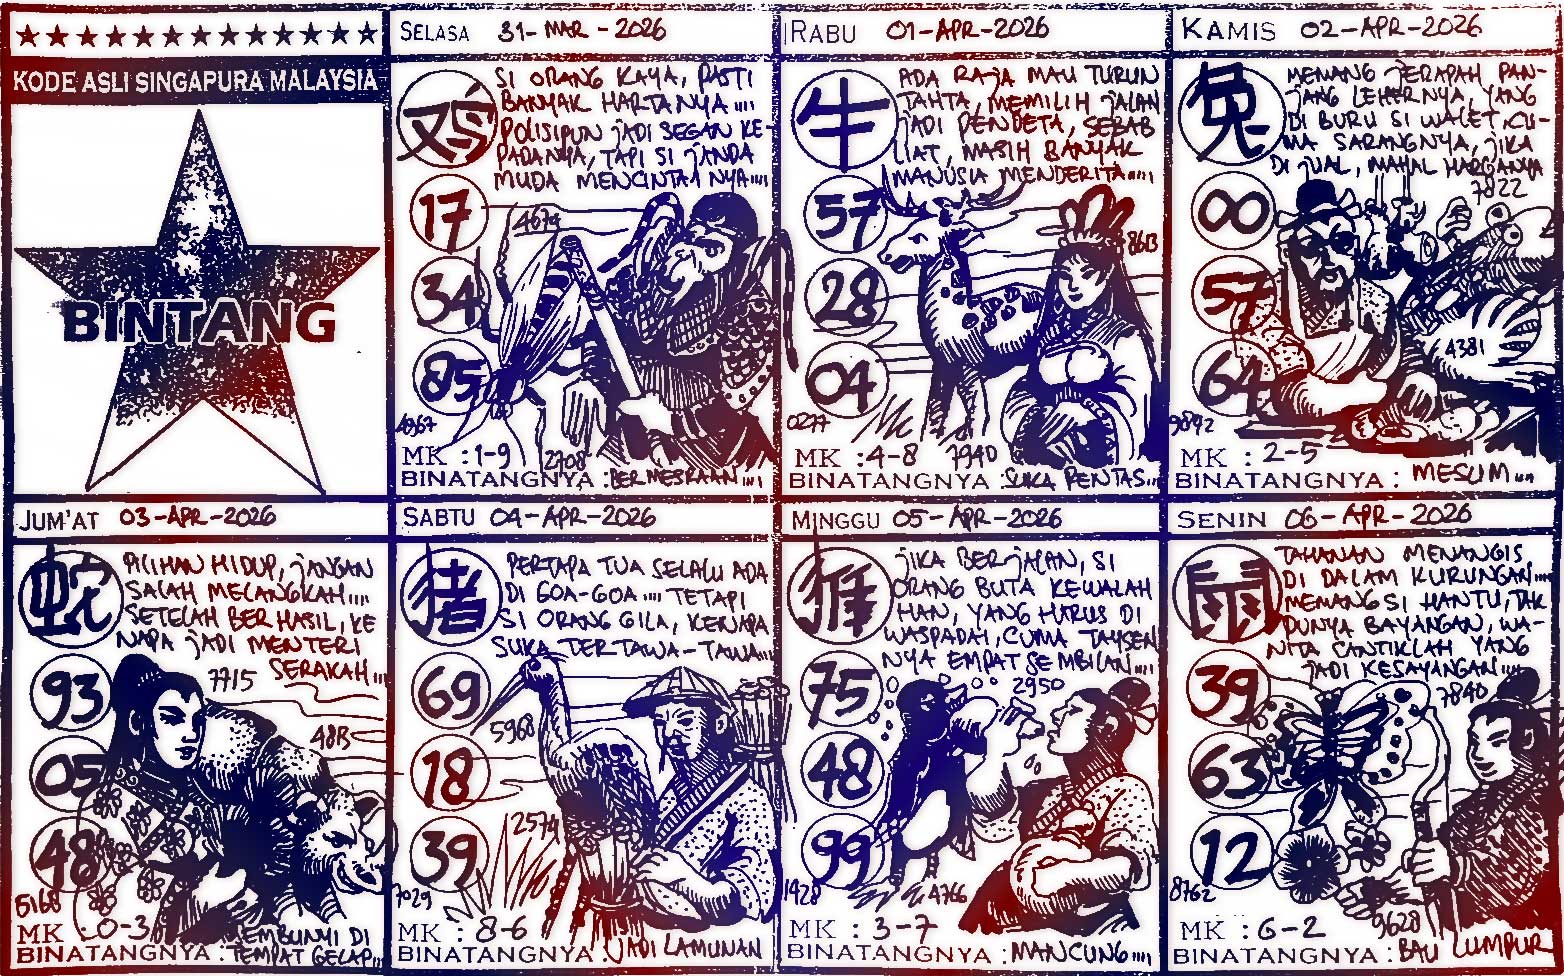 KODE ASLI SINGAPURA MALAYSIA
BINTANG
SELASA 31-MAR-2026
鸡
SI ORANG KAYA, PASTI
BANYAK HARTANYA....
POLISIPUN JADI SEGAN KE-
PADANYA, TAPI SI JANDA
MUDA MENCINTAI NYA....
17
4679
34
85
4967
MK : 1-9
2708
BINATANGNYA : BERMESRAAN....
RABU 01-APR-2026
牛
ADA RAJA MAU TURUN
TAHTA, MEMILIH JALAN
JADI PENDETA, SEBAB
LIAT, MASIH BANYAK
MANUSIA MENDERITA....
57
8613
28
04
0277
MK : 4-8
7940
BINATANGNYA : SUKA PENTAS...
KAMIS 02-APR-2026
兔
MEMANG JERAPAH PAN-
JANG LEHERNYA, YANG
DI BURU SI WALET, CU-
MA SARANGNYA, JIKA
DI JUAL, MAHAL HARGANYA
7822
00
57
4381
64
9892
MK : 2-5
BINATANGNYA : MESUM....
JUM'AT 03-APR-2026
蛇
PILIHAN HIDUP, JANGAN
SALAH MELANGKAH....
SETELAH BERHASIL, KE
NAPA JADI MENTERI
SERAKAH...
93
7715
4813
05
48
5168
MK : 0-3
BINATANGNYA : SEMBUNYI DI
TEMPAT GELAP...
SABTU 04-APR-2026
猪
PERTAPA TUA SELALU ADA
DI GOA-GOA.... TETAPI
SI ORANG GILA, KENAPA
SUKA TERTAWA-TAWA....
69
5968
18
2579
39
7029
MK : 8-6
BINATANGNYA : JADI LAMUNAN
MINGGU 05-APR-2026
猴
JIKA BERJALAN, SI
ORANG BUTA KEWALAH
HAN, YANG HARUS DI
WASPADAI, CUMA TAYSEN
NYA EMPAT SEMBILAN....
2950
75
48
99
1428
4766
MK : 3-7
BINATANGNYA : MANCUNG....
SENIN 06-APR-2026
鼠
TAHANAN MENANGIS
DI DALAM KURUNGAN....
MEMANG SI HANTU, TAK
PUNYA BAYANGAN, WA-
NITA CANTIKLAH YANG
JADI KESAYANGAN....
7840
39
63
12
8762
MK : 6-2
9628
BINATANGNYA : BAU LUMPUR